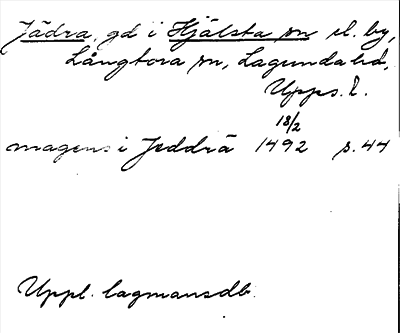 Jädra, gd i Hjälsta sn el. by,
Långtora sn, Lagunda hd,
Upps. l.
18/2
magens i Jeddrä 1492 s. 44
Uppl. lagmansdb.